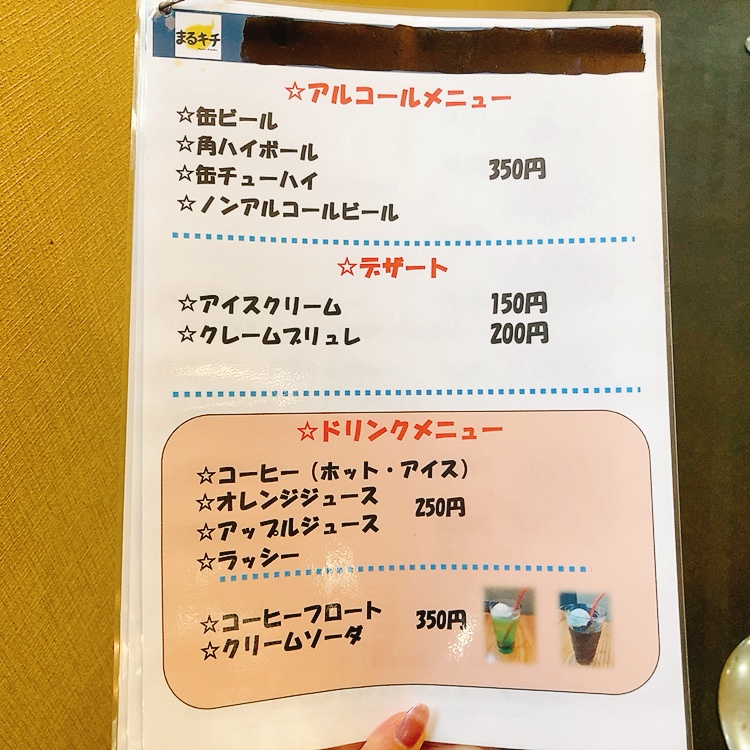 まるキチ
☆アルコールメニュー
☆缶ビール
☆角ハイボール
☆缶チューハイ
☆ノンアルコールビール
350円
☆デザート
☆アイスクリーム 150円
☆クレームブリュレ 200円
☆ドリンクメニュー
☆コーヒー（ホット・アイス）
☆オレンジジュース
☆アップルジュース
☆ラッシー
250円
☆コーヒーフロート
☆クリームソーダ
350円